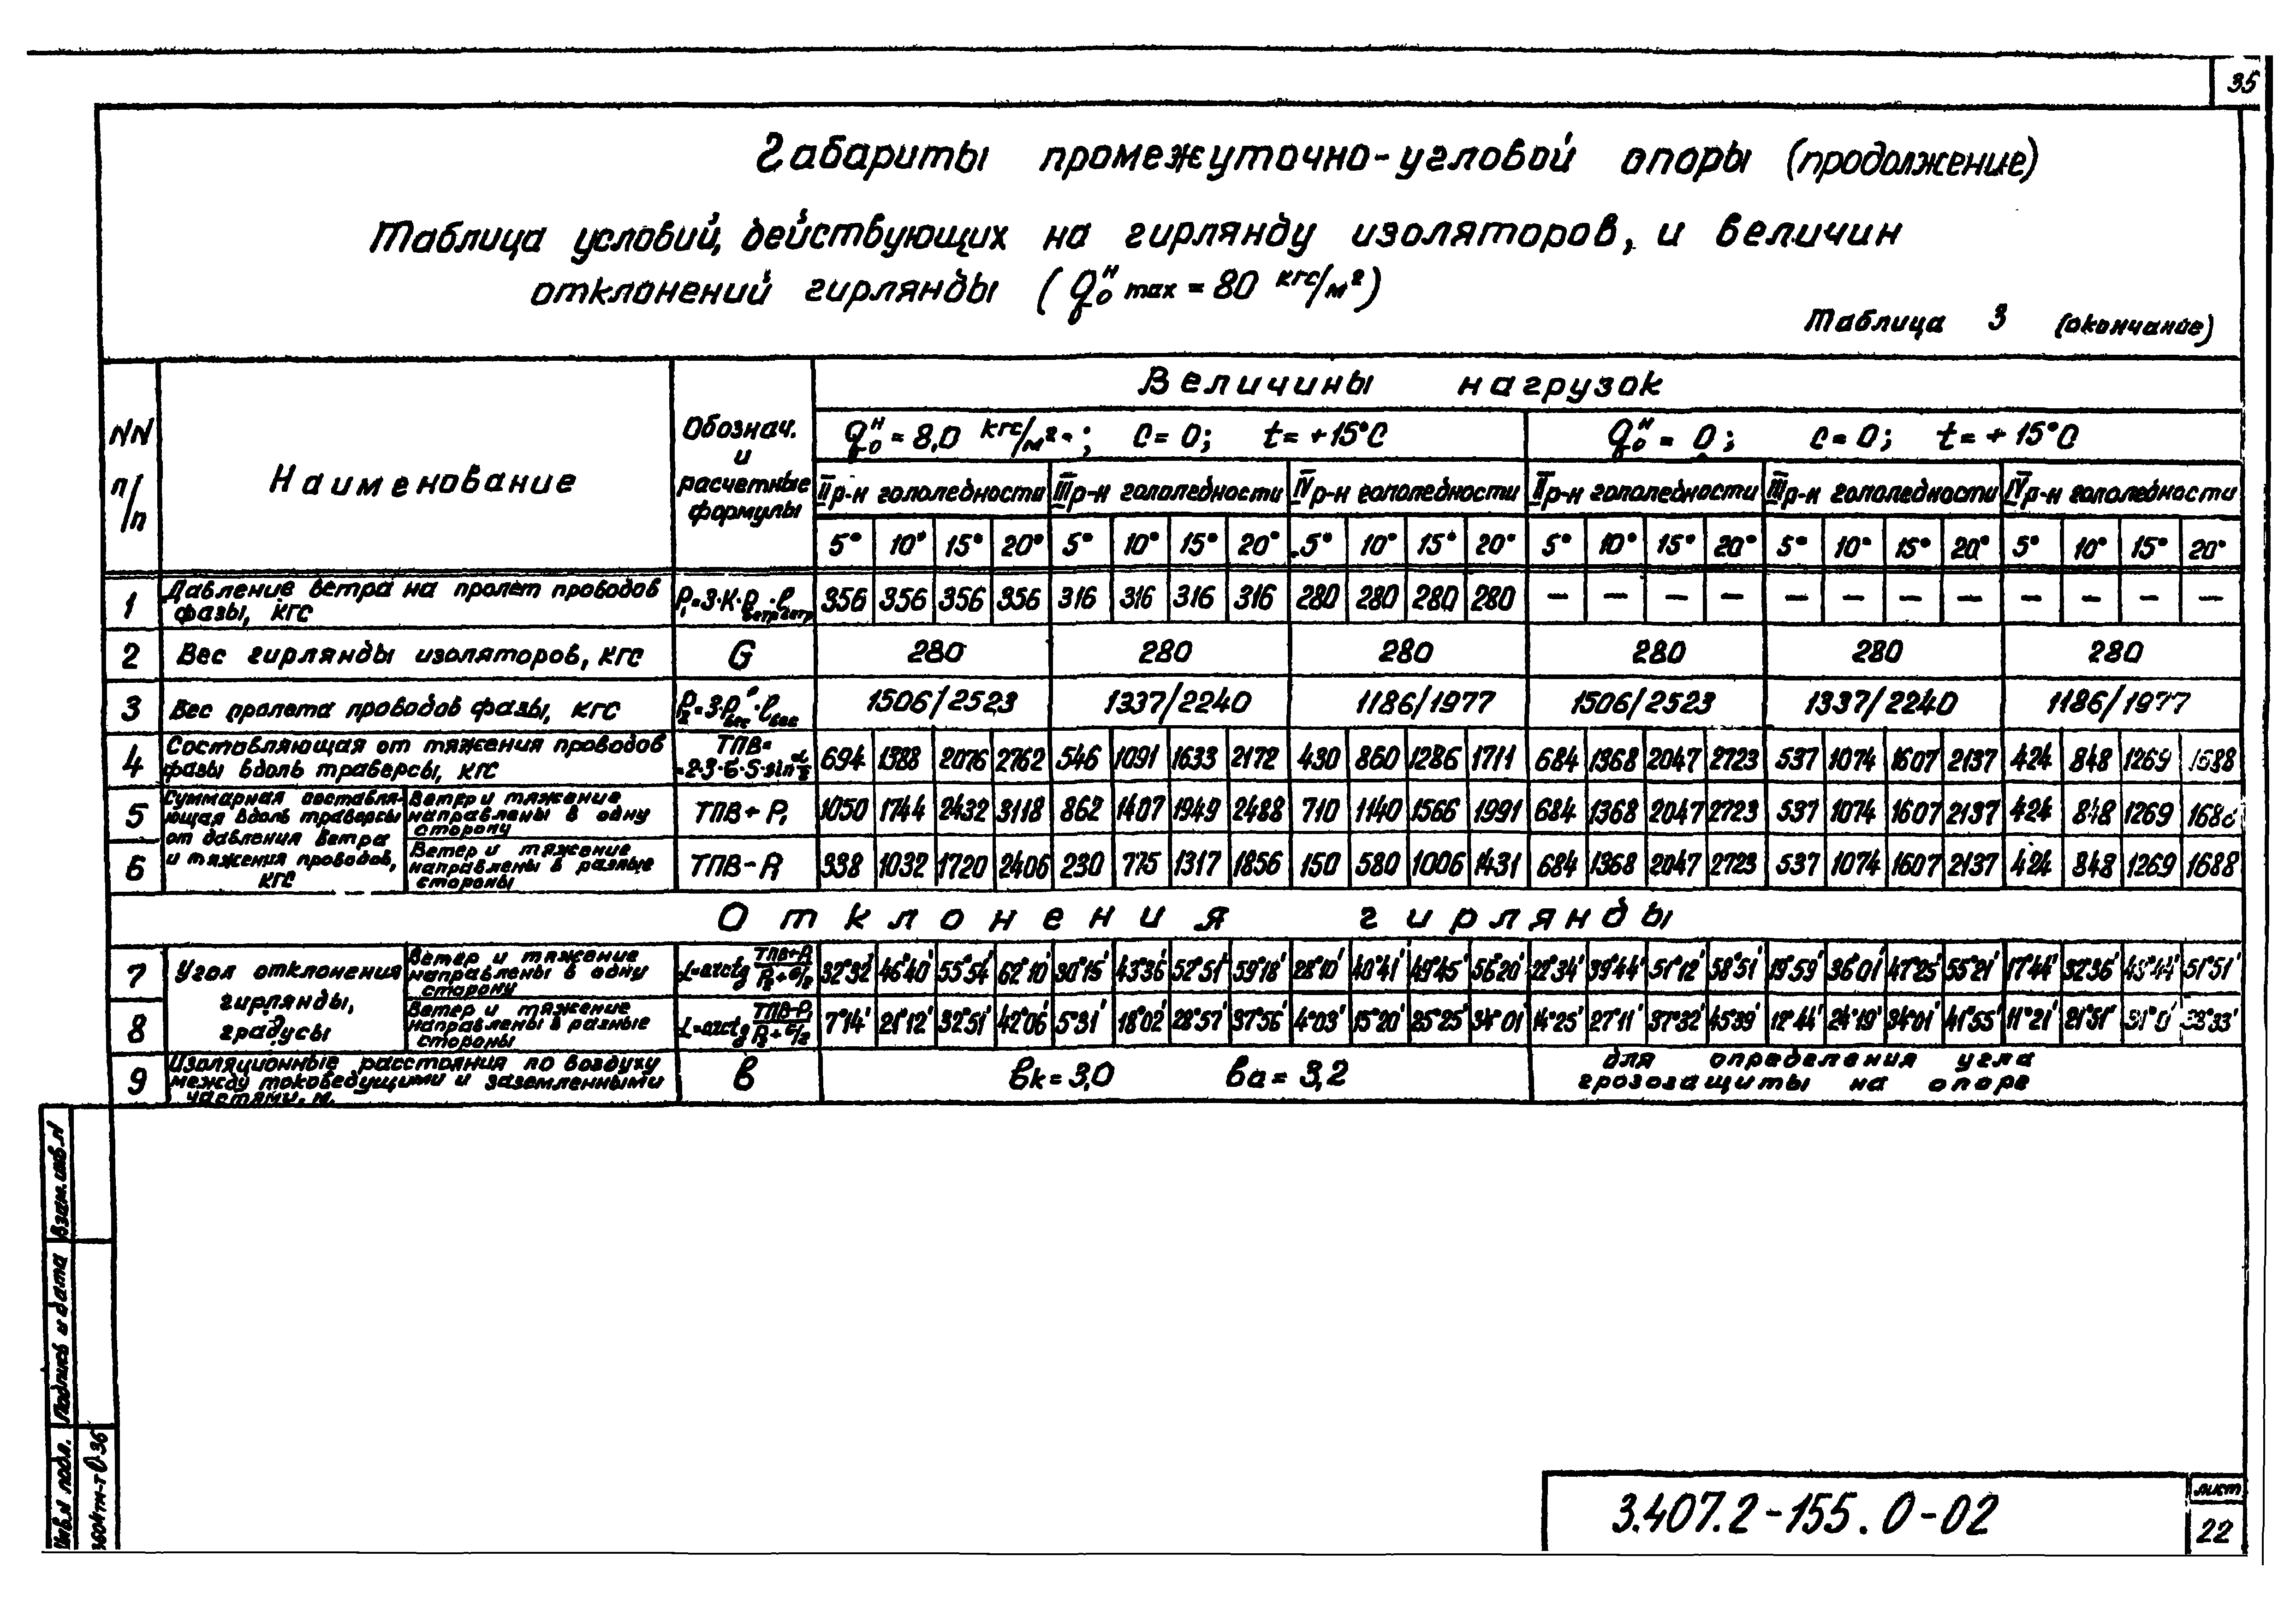 35
Габариты промежуточно-угловой опоры (продолжение)
Таблица условий, действующих на гирлянду изоляторов, и величин
отклонений гирлянды (qᴴ₀ max = 80 кгс/м²)
Таблица 3 (окончание)
NN п/п | Наименование | Обознач. и расчетные формулы | Величины нагрузок
qᴴ₀ = 8,0 кгс/м²; C = 0; t = +15°C | qᴴ₀ = 0; C = 0; t = +15°C
II р-н гололедности | III р-н гололедности | IV р-н гололедности | II р-н гололедности | III р-н гололедности | IV р-н гололедности
5° 10° 15° 20° 5° 10° 15° 20° 5° 10° 15° 20° 5° 10° 15° 20° 5° 10° 15° 20° 5° 10° 15° 20°
1 Давление ветра на пролет проводов фазы, кгс P₁=3·K·Pветр·lветр 356 356 356 356 316 316 316 316 280 280 280 280 — — — — — — — — — — — —
2 Вес гирлянды изоляторов, кгс G 280 280 280 280 280 280
3 Вес пролета проводов фазы, кгс P₂=3·P'вес·lвес 1506/2523 1337/2240 1186/1977 1506/2523 1337/2240 1186/1977
4 Составляющая от тяжения проводов фазы вдоль траверсы, кгс ТПВ= =2·3·б·S·sin α/2 694 1388 2076 2762 546 1091 1633 2172 430 860 1286 1711 684 1368 2047 2723 537 1074 1607 2137 424 848 1269 1688
5 Суммарная составляющая вдоль траверсы от давления ветра и тяжения проводов, кгс Ветер и тяжение направлены в одну сторону ТПВ+P₁ 1050 1744 2432 3118 862 1407 1949 2488 710 1140 1566 1991 684 1368 2047 2723 537 1074 1607 2137 424 848 1269 1688
6 Ветер и тяжение направлены в разные стороны ТПВ-P₁ 338 1032 1720 2406 230 775 1317 1856 150 580 1006 1431 684 1368 2047 2723 537 1074 1607 2137 424 848 1269 1688
Отклонения гирлянды
7 Угол отклонения гирлянды, градусы Ветер и тяжение направлены в одну сторону α=arctg (ТПВ+P₁)/(P₂+G/2) 32°32' 46°40' 55°54' 62°10' 30°15' 43°36' 52°51' 59°18' 28°10' 40°41' 49°45' 56°20' 22°34' 39°44' 51°12' 58°51' 19°59' 36°01' 47°25' 55°21' 17°44' 32°36' 43°44' 51°51'
8 Ветер и тяжение направлены в разные стороны α=arctg (ТПВ-P₁)/(P₂+G/2) 7°14' 21°12' 32°51' 42°06' 5°31' 18°02' 28°57' 37°56' 4°03' 15°20' 25°25' 34°01' 14°25' 27°11' 37°32' 45°39' 12°44' 24°19' 34°01' 41°55' 11°21' 21°51' 38°33'
9 Изоляционные расстояния по воздуху между токоведущими и заземленными частями, м. в вк=3,0 ва=3,2 для определения угла грозозащиты на опоре
Взам. инв.N
Подпись и дата
Инв.N подл.
3.407.2-155.0-02
лист
22